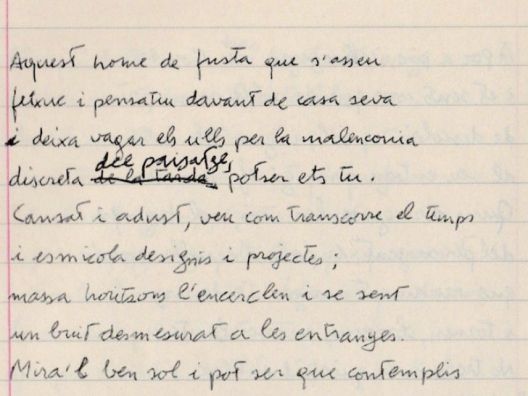 Aquest home de fusta que s'asseu
feixuc i pensatiu davant de casa seva
i deixa vagar els ulls per la malenconia
discreta de la tarda del paisatge, potser ets tu.
Cansat i adust, veu com transcorre el temps
i esmicola designis i projectes;
massa horitzons l'encerclen i se sent
un buit desmesurat a les entranyes.
Mira'l ben sol i pot ser que contemplis